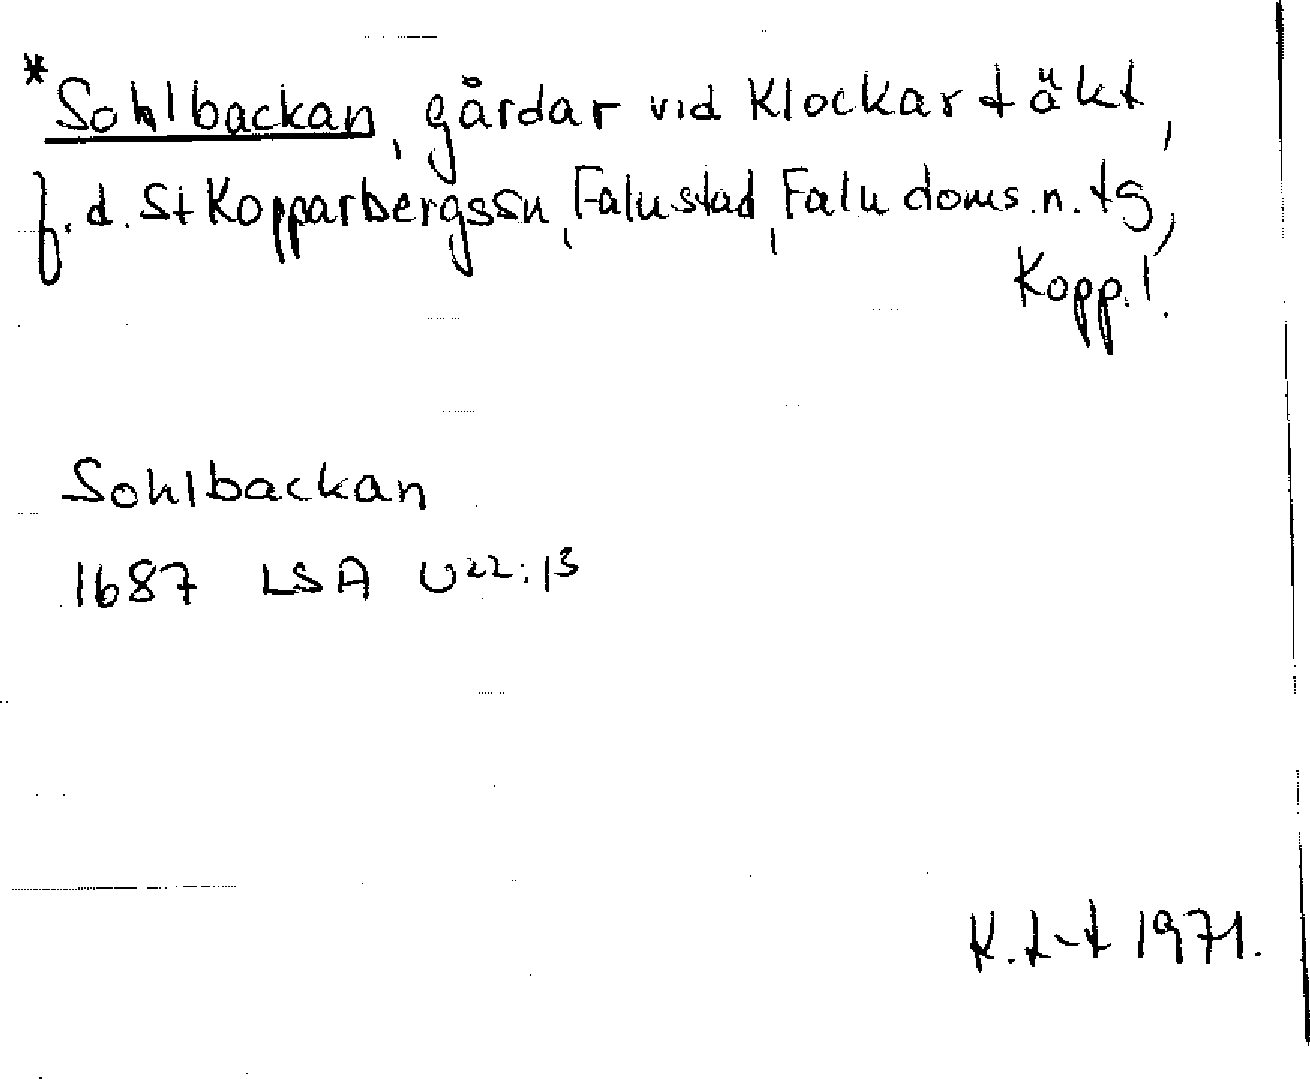 *Sohlbackan, gårdar vid Klockartäkt,
f.d. St Kopparbergs sn, Falu stad, Falu doms.n. tg,
Kopp. l.
Sohlbackan
1687 LSA U22:13
K. t-t 1971.